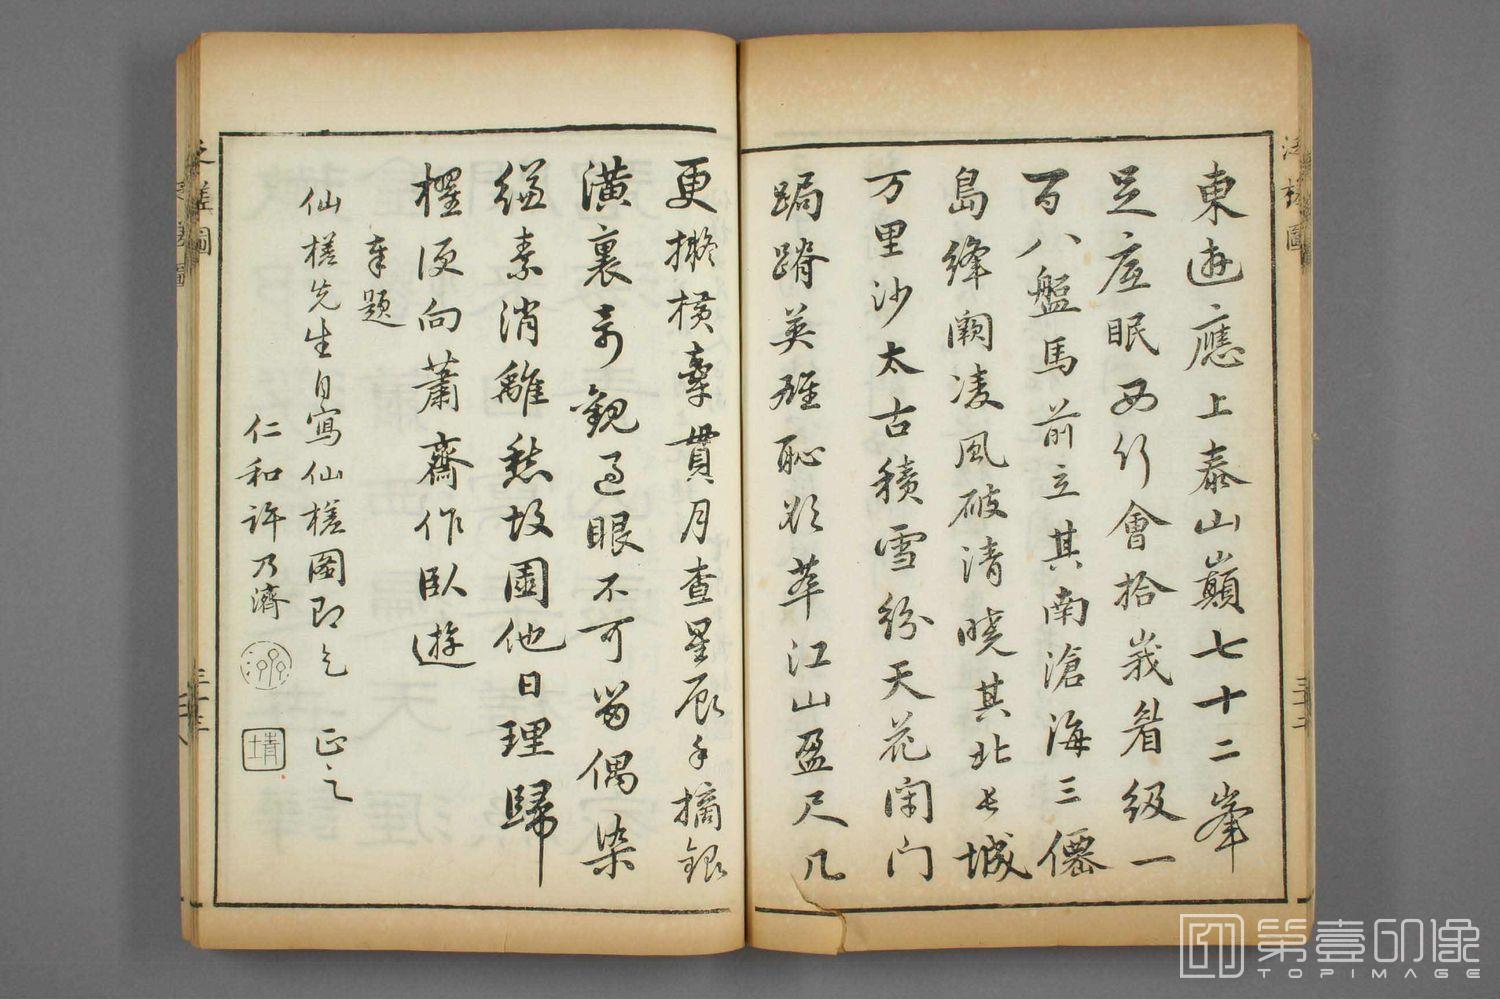 東遊應上泰山巔七十二峯
足底眠西行會拾峩眉級一
百八盤馬前立其南滄海三僊
島絳闕凌風破清曉其北長城
万里沙太古積雪紛天花閉门
跼蹐英雄恥欲萃江山盈尺几
更擬橫牽貫月查星辰手摘銀
潢裏奇觀過眼不可留偶染
縑素消離愁故園他日理歸
櫂便向蕭齋作臥遊
奉題
仙槎先生自寫仙槎圖即乞 正之
仁和許乃濟
泛槎圖
三十二
三十三
第壹印像
TOPIMAGE